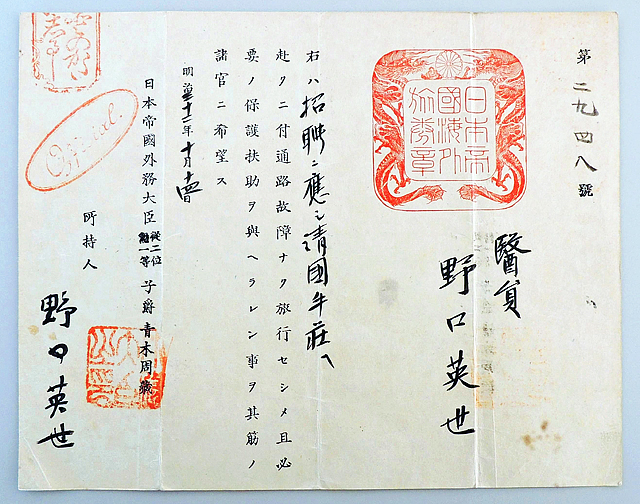 第二九四八號
日本帝
國海外
旅券章
醫員
野口英世
右ハ招聘ニ應シ清國牛莊ヘ
赴クニ付通路故障ナク旅行セシメ且必
要ノ保護扶助ヲ與ヘラレン事ヲ其筋ノ
諸官ニ希望ス
明治三十二年十月十四日
日本帝國外務大臣從二位勲一等子爵青木周藏
所持人
野口英世
Official.